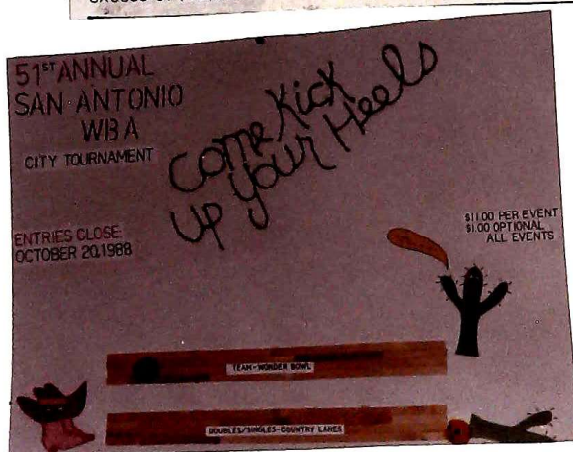 51ST ANNUAL
SAN ANTONIO
WBA
CITY TOURNAMENT
Come Kick
up your Heels
ENTRIES CLOSE:
OCTOBER 20,1988
$11.00 PER EVENT
$1.00 OPTIONAL
ALL EVENTS
TEAM-WONDER BOWL
DOUBLES/SINGLES-COUNTRY LANES